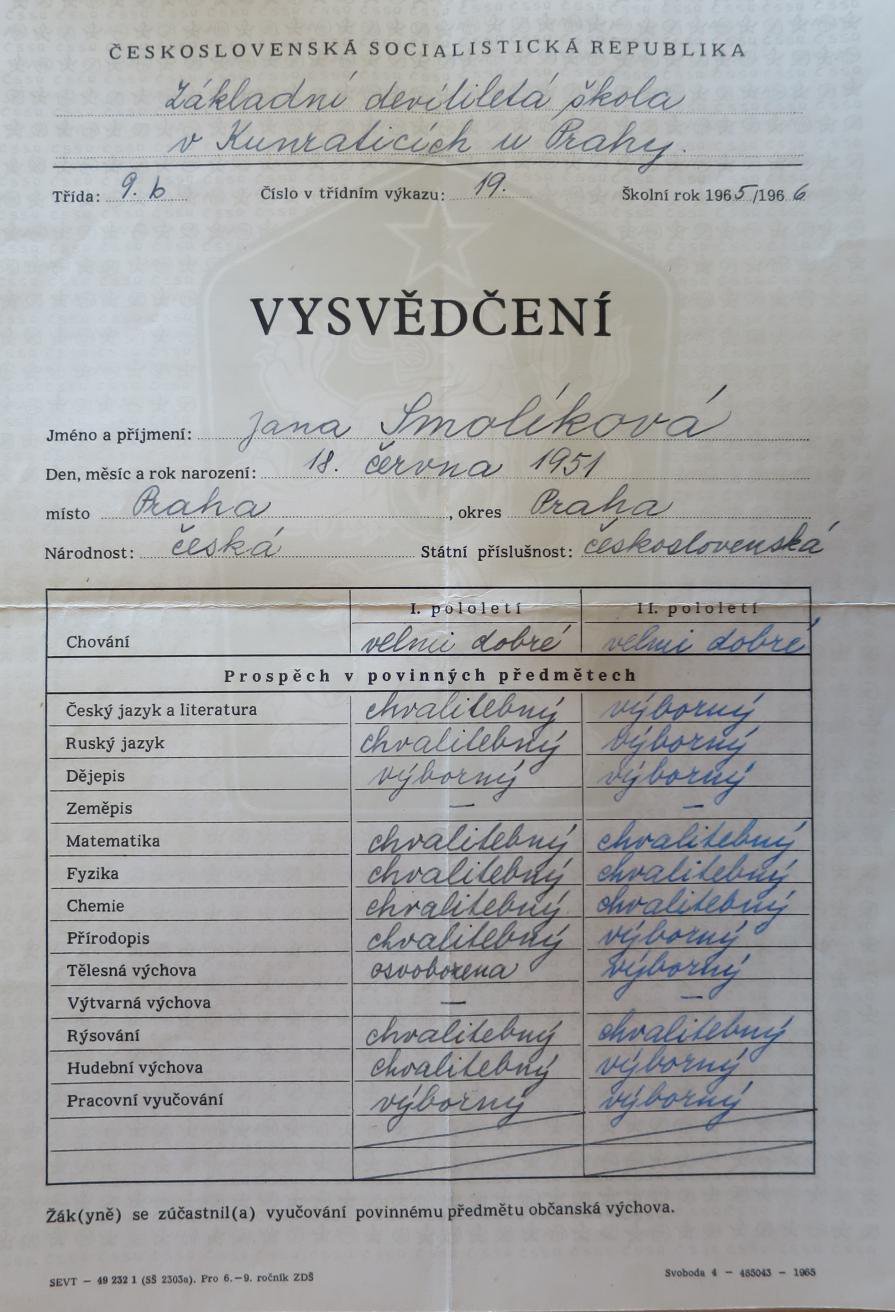 ČESKOSLOVENSKÁ SOCIALISTICKÁ REPUBLIKA
Základní devítiletá škola
v Kunraticích u Prahy.
Třída: 9. b Číslo v třídním výkazu: 19. Školní rok 1965/1966
VYSVĚDČENÍ
Jméno a příjmení: Jana Smolíková
Den, měsíc a rok narození: 18. června 1951
místo Praha, okres Praha
Národnost: česká Státní příslušnost: československá
I. pololetí II. pololetí
Chování velmi dobré velmi dobré
Prospěch v povinných předmětech
Český jazyk a literatura chvalitebný výborný
Ruský jazyk chvalitebný výborný
Dějepis výborný výborný
Zeměpis — —
Matematika chvalitebný chvalitebný
Fyzika chvalitebný chvalitebný
Chemie chvalitebný chvalitebný
Přírodopis chvalitebný výborný
Tělesná výchova osvobozena výborný
Výtvarná výchova — —
Rýsování chvalitebný chvalitebný
Hudební výchova chvalitebný výborný
Pracovní vyučování výborný výborný
Žák(yně) se zúčastnil(a) vyučování povinnému předmětu občanská výchova.
SEVT — 49 232 1 (SŠ 2303a). Pro 6.—9. ročník ZDŠ Svoboda 4 — 485043 — 1965